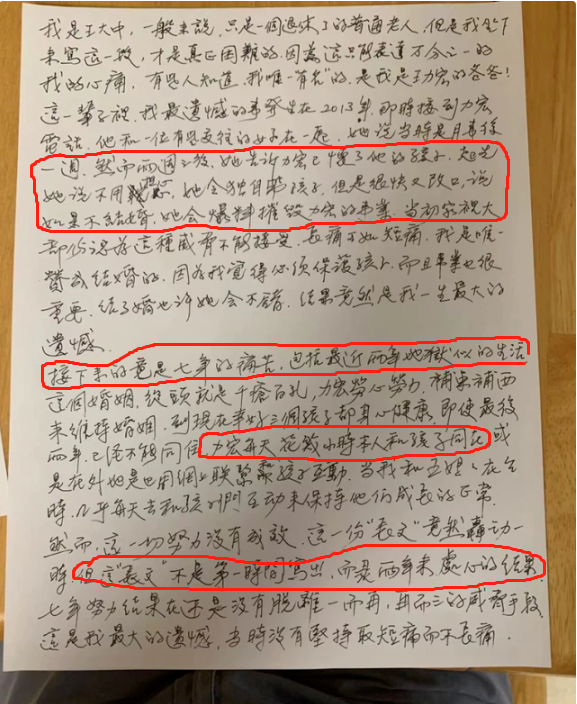 我是王大中，一般來說，只是一個退休了的普通老人，但是我坐下
來寫這一般，才是真正困難的，因為這只能表達万分之一的
我的心痛，有些人知道，我唯一"有名"的，是我是王力宏的爸爸！
這一輩子裡，我最遺憾的事發生在2013年，那時接到力宏
電話，他和一位有些交往的女子在一起，她說当時是月事後
一週，然而兩週之後，她告訴力宏已懷了他的孩子，起先
她說不用擔心，她會獨自帶孩子，但是很快又改口，說
如果不結婚，她会爆料摧毀力宏的事業，當初家裡大
部份認為這種威脅不能接受，長痛不如短痛，我是唯一
贊成結婚的，因為我覺得必須保護孩子，而且事業也很
重要，結了婚也许她会不錯，結果竟然是我一生最大的
遺憾。
接下來的竟是七年的痛苦，包括最近兩年地獄似的生活
這個婚姻，從頭就是千瘡百孔，力宏勞心勞力，補東補西
來維持婚姻，到現在幸好三個孩子都身心健康，即使最後
兩年，已経不能同住，力宏每天花幾小時本人和孩子同在或
是在外地是也用網上联繫繫孩子互動，当我和五姐、在台
時，几乎每天去和孩子們互動来保持他们成長的正常，
然而，這一切努力没有成效，這一份"長文"竟然轟动一
時，但這"長文"不是第一時間寫出，而是兩年来，處心的結果
七年努力結果在还是没有脱離一而再，再而三的威脅手段
這是我最大的遺憾，当時没有堅持取短痛而不長痛．